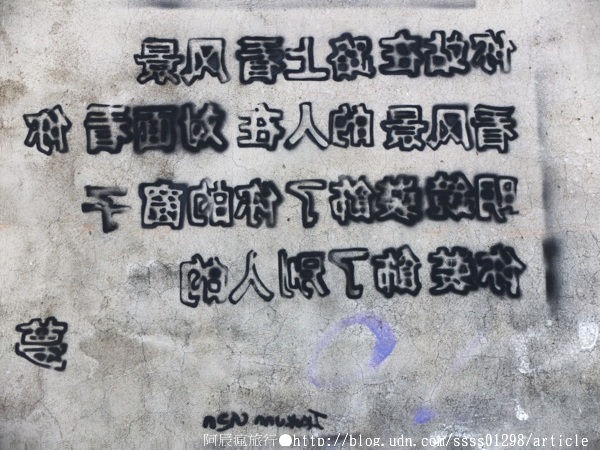 你站在桥上看风景
看风景的人在对面看你
明装饰了你的窗子
你装饰了别人的
梦
阿辰瘋旅行●http://blog.udn.com/ssss01298/article